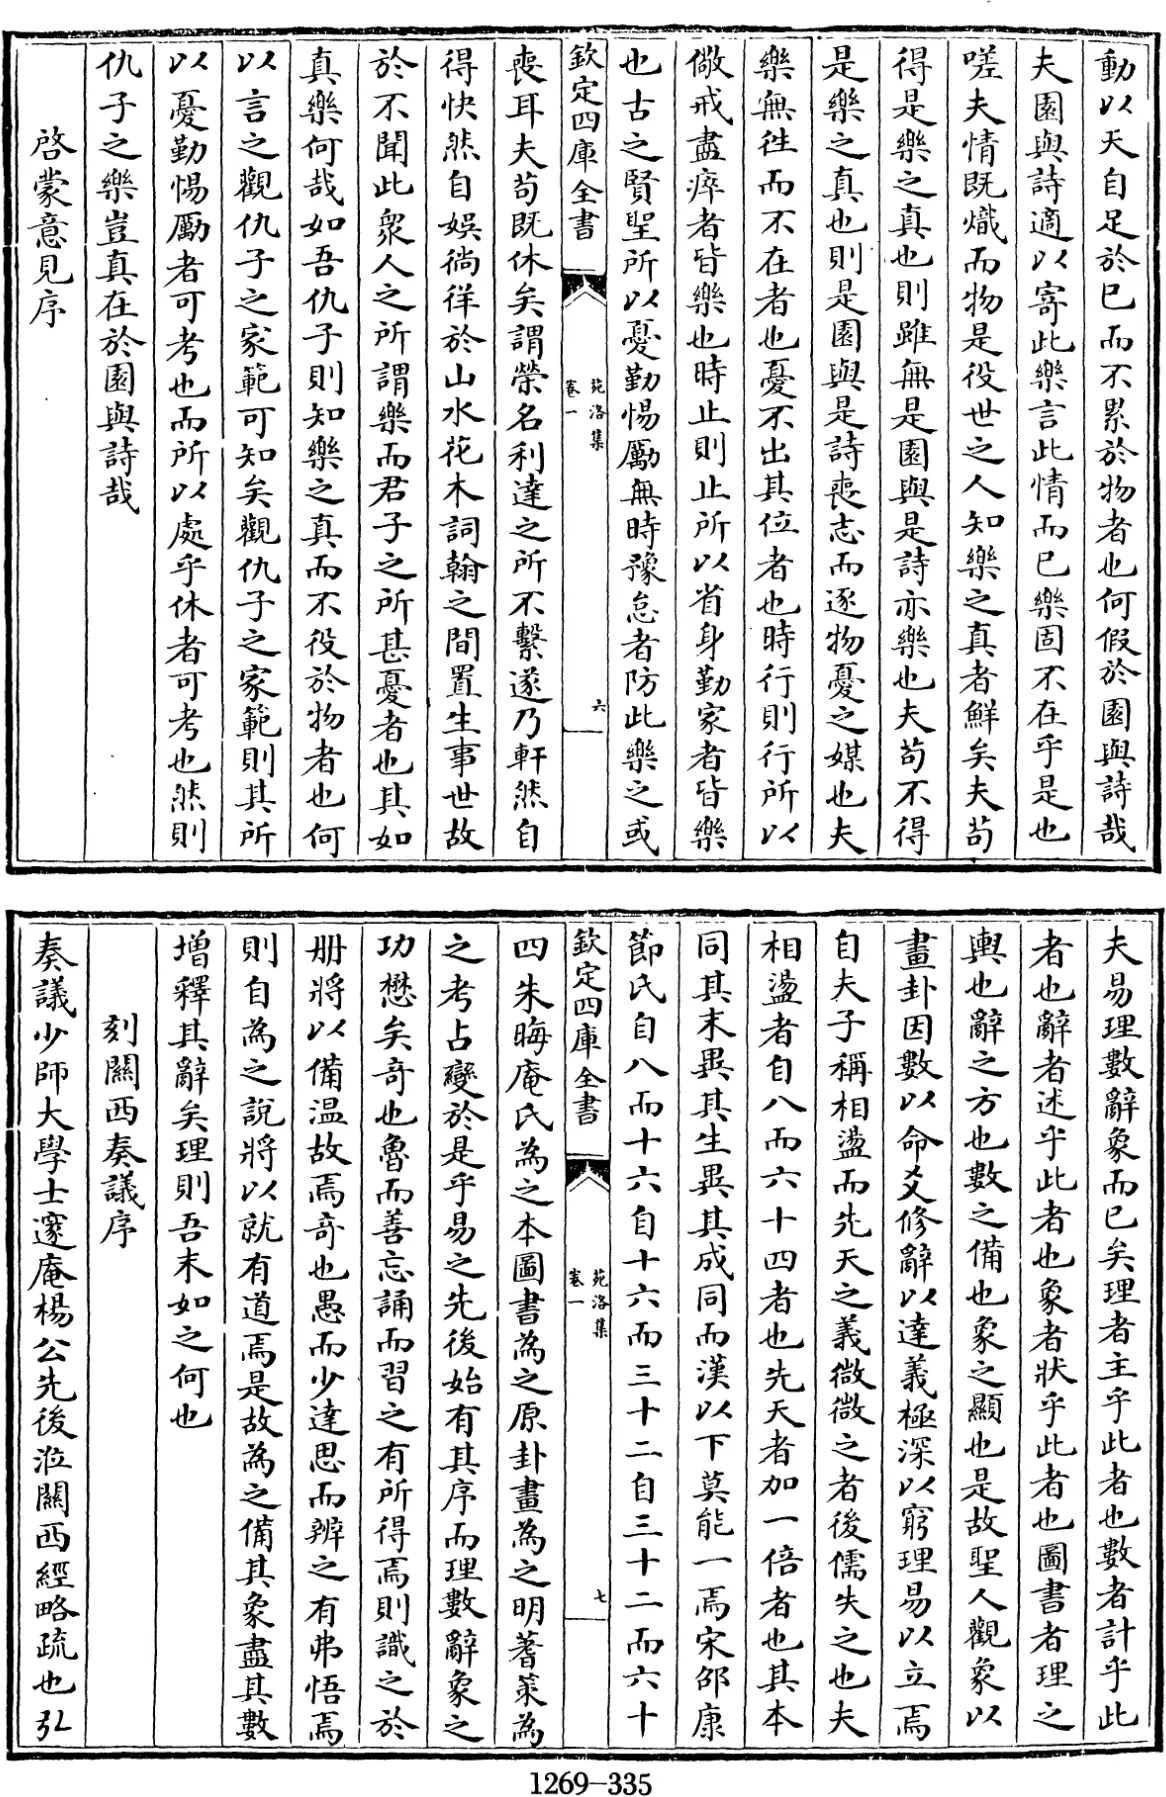 動以天自足於已而不累於物者也何假於園與詩哉
夫園與詩適以寄此樂言此情而已樂固不在乎是也
嗟夫情既熾而物是役世之人知樂之真者鮮矣夫苟
得是樂之真也則雖無是園與是詩亦樂也夫苟不得
是樂之真也則是園與是詩喪志而逐物憂之媒也夫
樂無徃而不在者也憂不出其位者也時行則行所以
儆戒盡瘁者皆樂也時止則止所以省身勤家者皆樂
也古之賢聖所以憂勤惕厲無時豫怠者防此樂之或
欽定四庫全書
苑洛集
卷一
六
喪耳夫苟既休矣謂榮名利達之所不繫遂乃軒然自
得快然自娛徜徉於山水花木詞翰之間置生事世故
於不聞此衆人之所謂樂而君子之所甚憂者也其如
真樂何哉如吾仇子則知樂之真而不役於物者也何
以言之觀仇子之家範可知矣觀仇子之家範則其所
以憂勤惕厲者可考也而所以處乎休者可考也然則
仇子之樂豈真在於園與詩哉
啓蒙意見序
夫易理數辭象而已矣理者主乎此者也數者計乎此
者也辭者述乎此者也象者狀乎此者也圖書者理之
輿也辭之方也數之備也象之顯也是故聖人觀象以
畫卦因數以命爻修辭以達義極深以窮理易以立焉
自夫子稱相盪而先天之義微微之者後儒失之也夫
相盪者自八而六十四者也先天者加一倍者也其本
同其末異其生異其成同而漢以下莫能一焉宋邵康
節氏自八而十六自十六而三十二自三十二而六十
欽定四庫全書
苑洛集
卷一
七
四朱晦庵氏為之本圖書為之原卦畫為之明蓍策為
之考占變於是乎易之先後始有其序而理數辭象之
功懋矣奇也魯而善忘誦而習之有所得焉則識之於
冊將以備温故焉奇也愚而少達思而辨之有弗悟焉
則自為之說將以就有道焉是故為之備其象盡其數
增釋其辭矣理則吾末如之何也
刻關西奏議序
奏議少師大學士邃庵楊公先後涖關西經略疏也引
1269-335